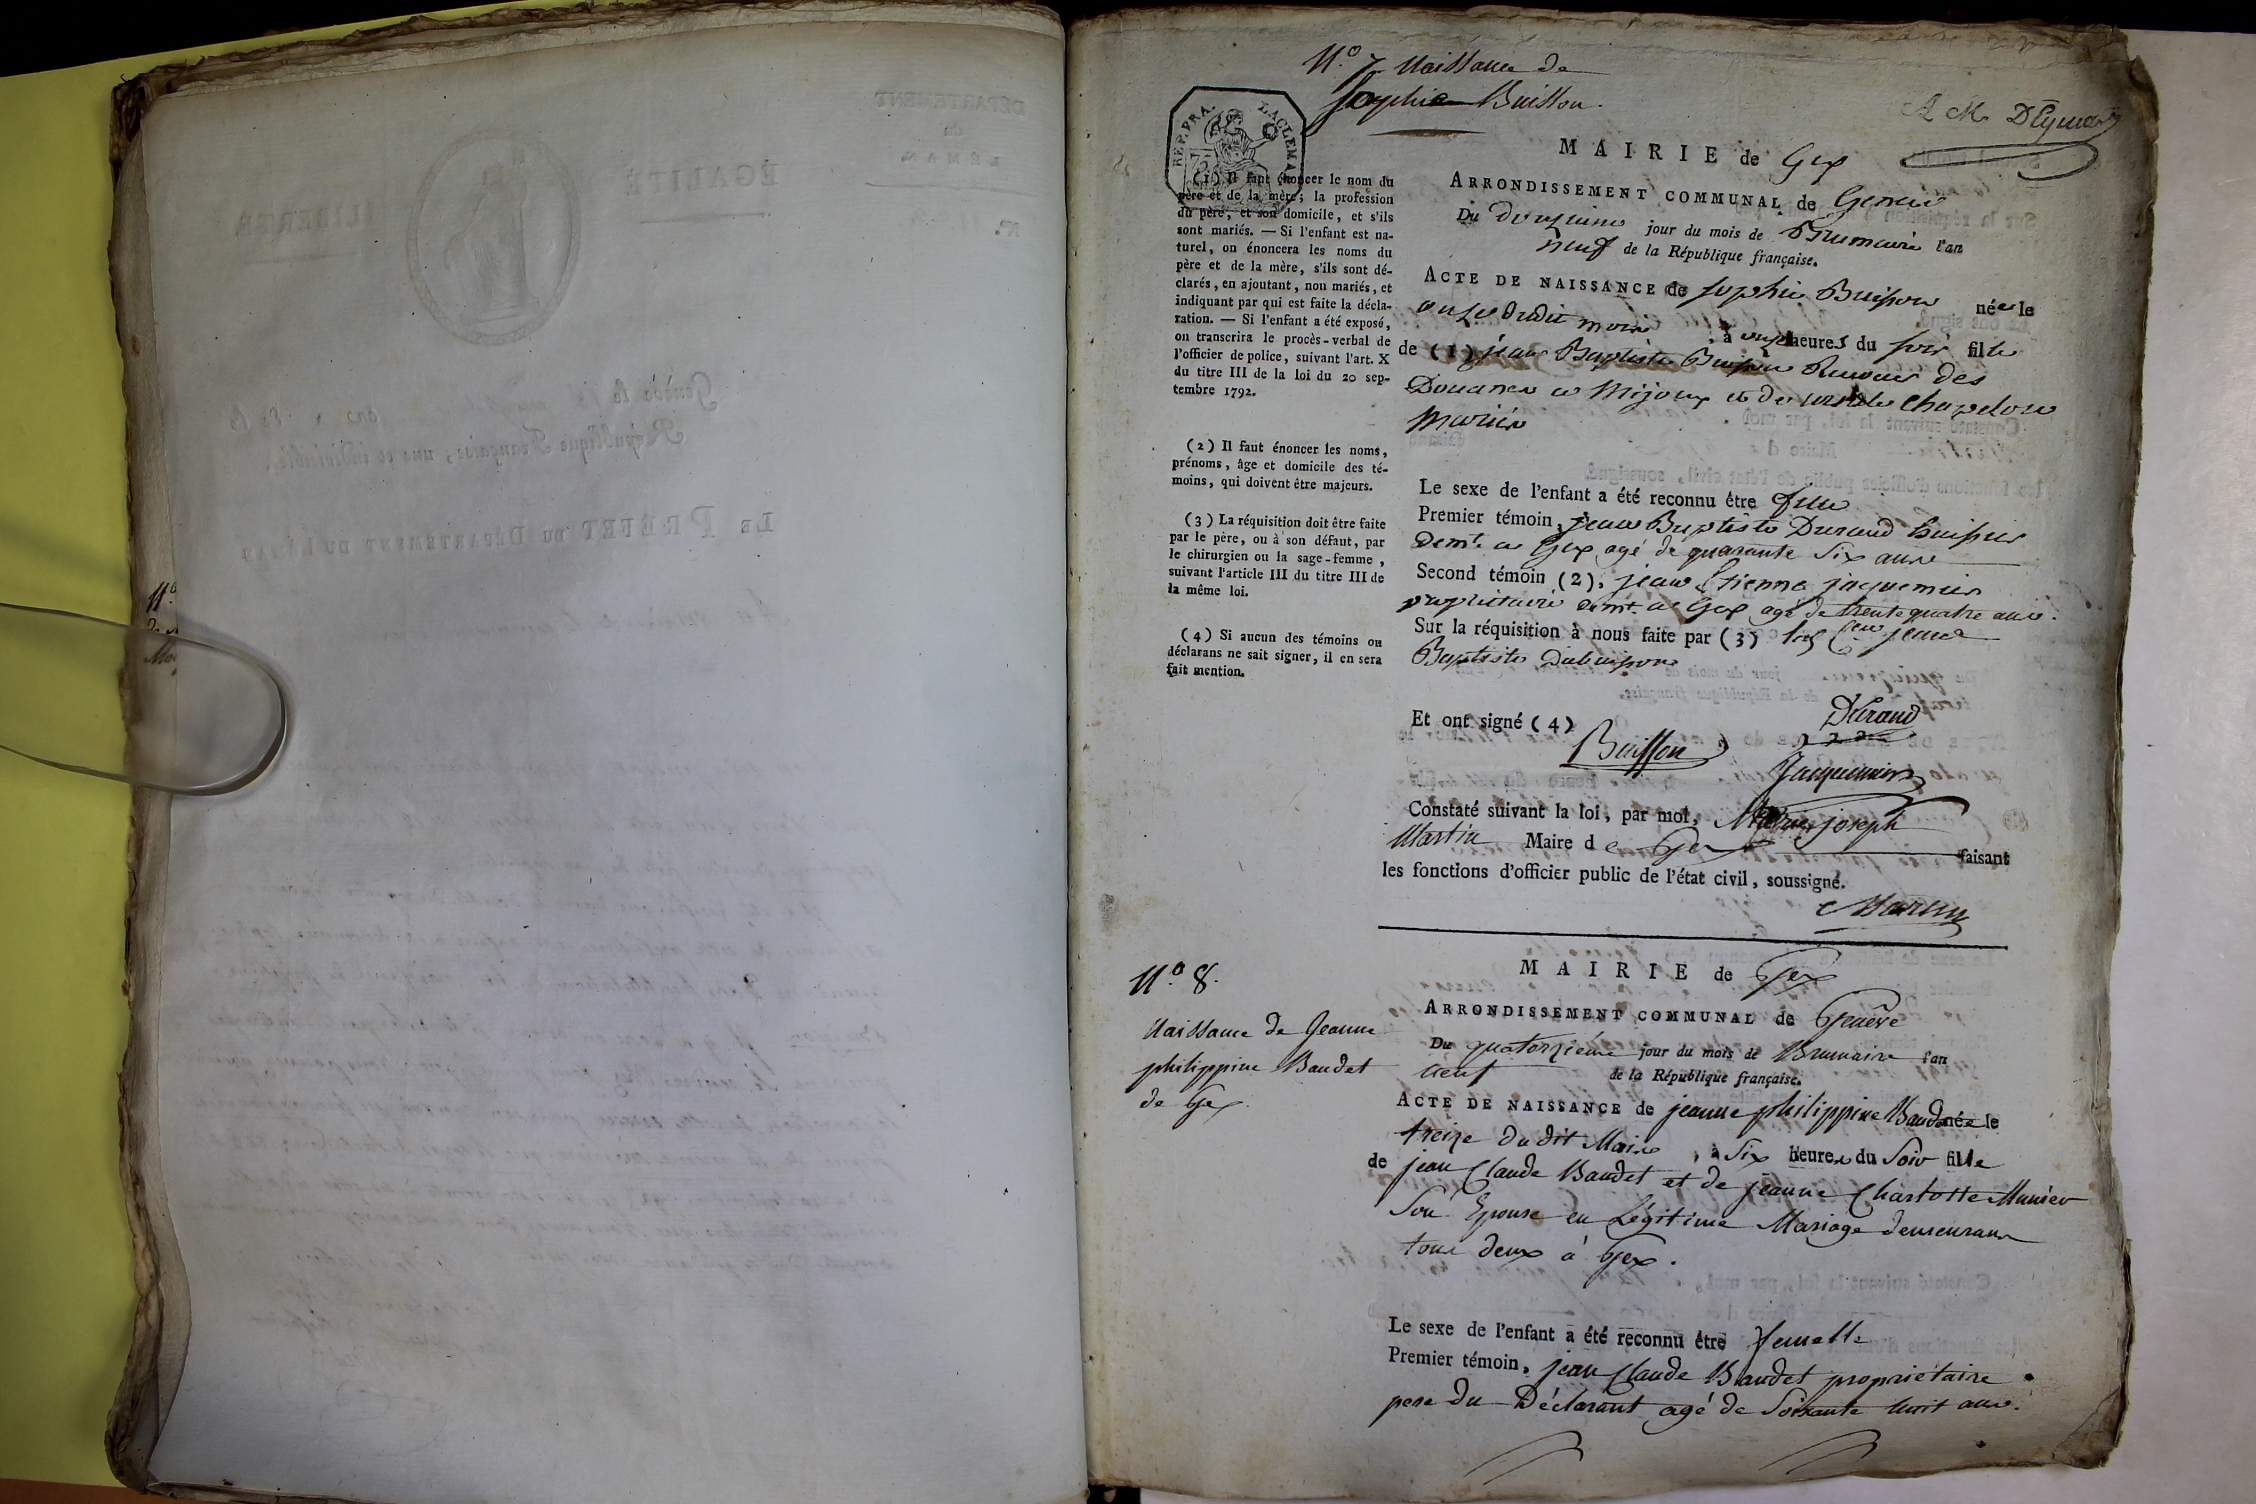 N.o 7 Naissance de
Sophie Buisson.
A M. DEymar
REP. FRA.
MAIRIE de Gex
ARRONDISSEMENT COMMUNAL de Geneve
Du douzieme jour du mois de Brumaire l'an
neuf de la République française.
ACTE DE NAISSANCE de Sophie Buisson née le
onze dudit mois à onze heures du soir fille
de (1) jean Baptiste Buisson Receveur des
Douanes a Mijoux et de Chapelon
Mariés
Le sexe de l'enfant a été reconnu être
Premier témoin, jean Baptiste Durand huissier
demt. a Gex agé de quarante six ans
Second témoin (2), jean Etienne jacquemier
proprietaire demt. a Gex agé de trente quatre ans.
Sur la réquisition à nous faite par (3) jean
Baptiste Dubuisson
Et ont signé (4)
Durand
Buisson
Jacquemier
Constaté suivant la loi, par moi, joseph
Martin Maire de Gex faisant
les fonctions d'officier public de l'état civil, soussigné.
Martin
(1) Il faut énoncer le nom du
père et de la mère; la profession
du père, et son domicile, et s'ils
sont mariés. — Si l'enfant est na-
turel, on énoncera les noms du
père et de la mère, s'ils sont dé-
clarés, en ajoutant, non mariés, et
indiquant par qui est faite la décla-
ration. — Si l'enfant a été exposé,
on transcrira le procès-verbal de
l'officier de police, suivant l'art. X
du titre III de la loi du 20 sep-
tembre 1792.
(2) Il faut énoncer les noms,
prénoms, âge et domicile des té-
moins, qui doivent être majeurs.
(3) La réquisition doit être faite
par le père, ou à son défaut, par
le chirurgien ou la sage-femme,
suivant l'article III du titre III de
la même loi.
(4) Si aucun des témoins ou
déclarans ne sait signer, il en sera
fait mention.
N.o 8.
Naissance de Jeanne
philippine Baudet
de Gex
MAIRIE de Gex
ARRONDISSEMENT COMMUNAL de Genêve
Du quatorziéme jour du mois de Brumaire l'an
neuf de la République française.
ACTE DE NAISSANCE de jeanne philippine Baudet née le
treize dudit Mois, à Six heures du Soir fille
de jean Claude Baudet et de jeanne Charlotte Munier
Son Epouse en Légitime Mariage demeurans
tous deux à Gex.
Le sexe de l'enfant a été reconnu être femelle
Premier témoin, jean Claude Baudet proprietaire
pere du Déclarant agé de Soixante huit ans.